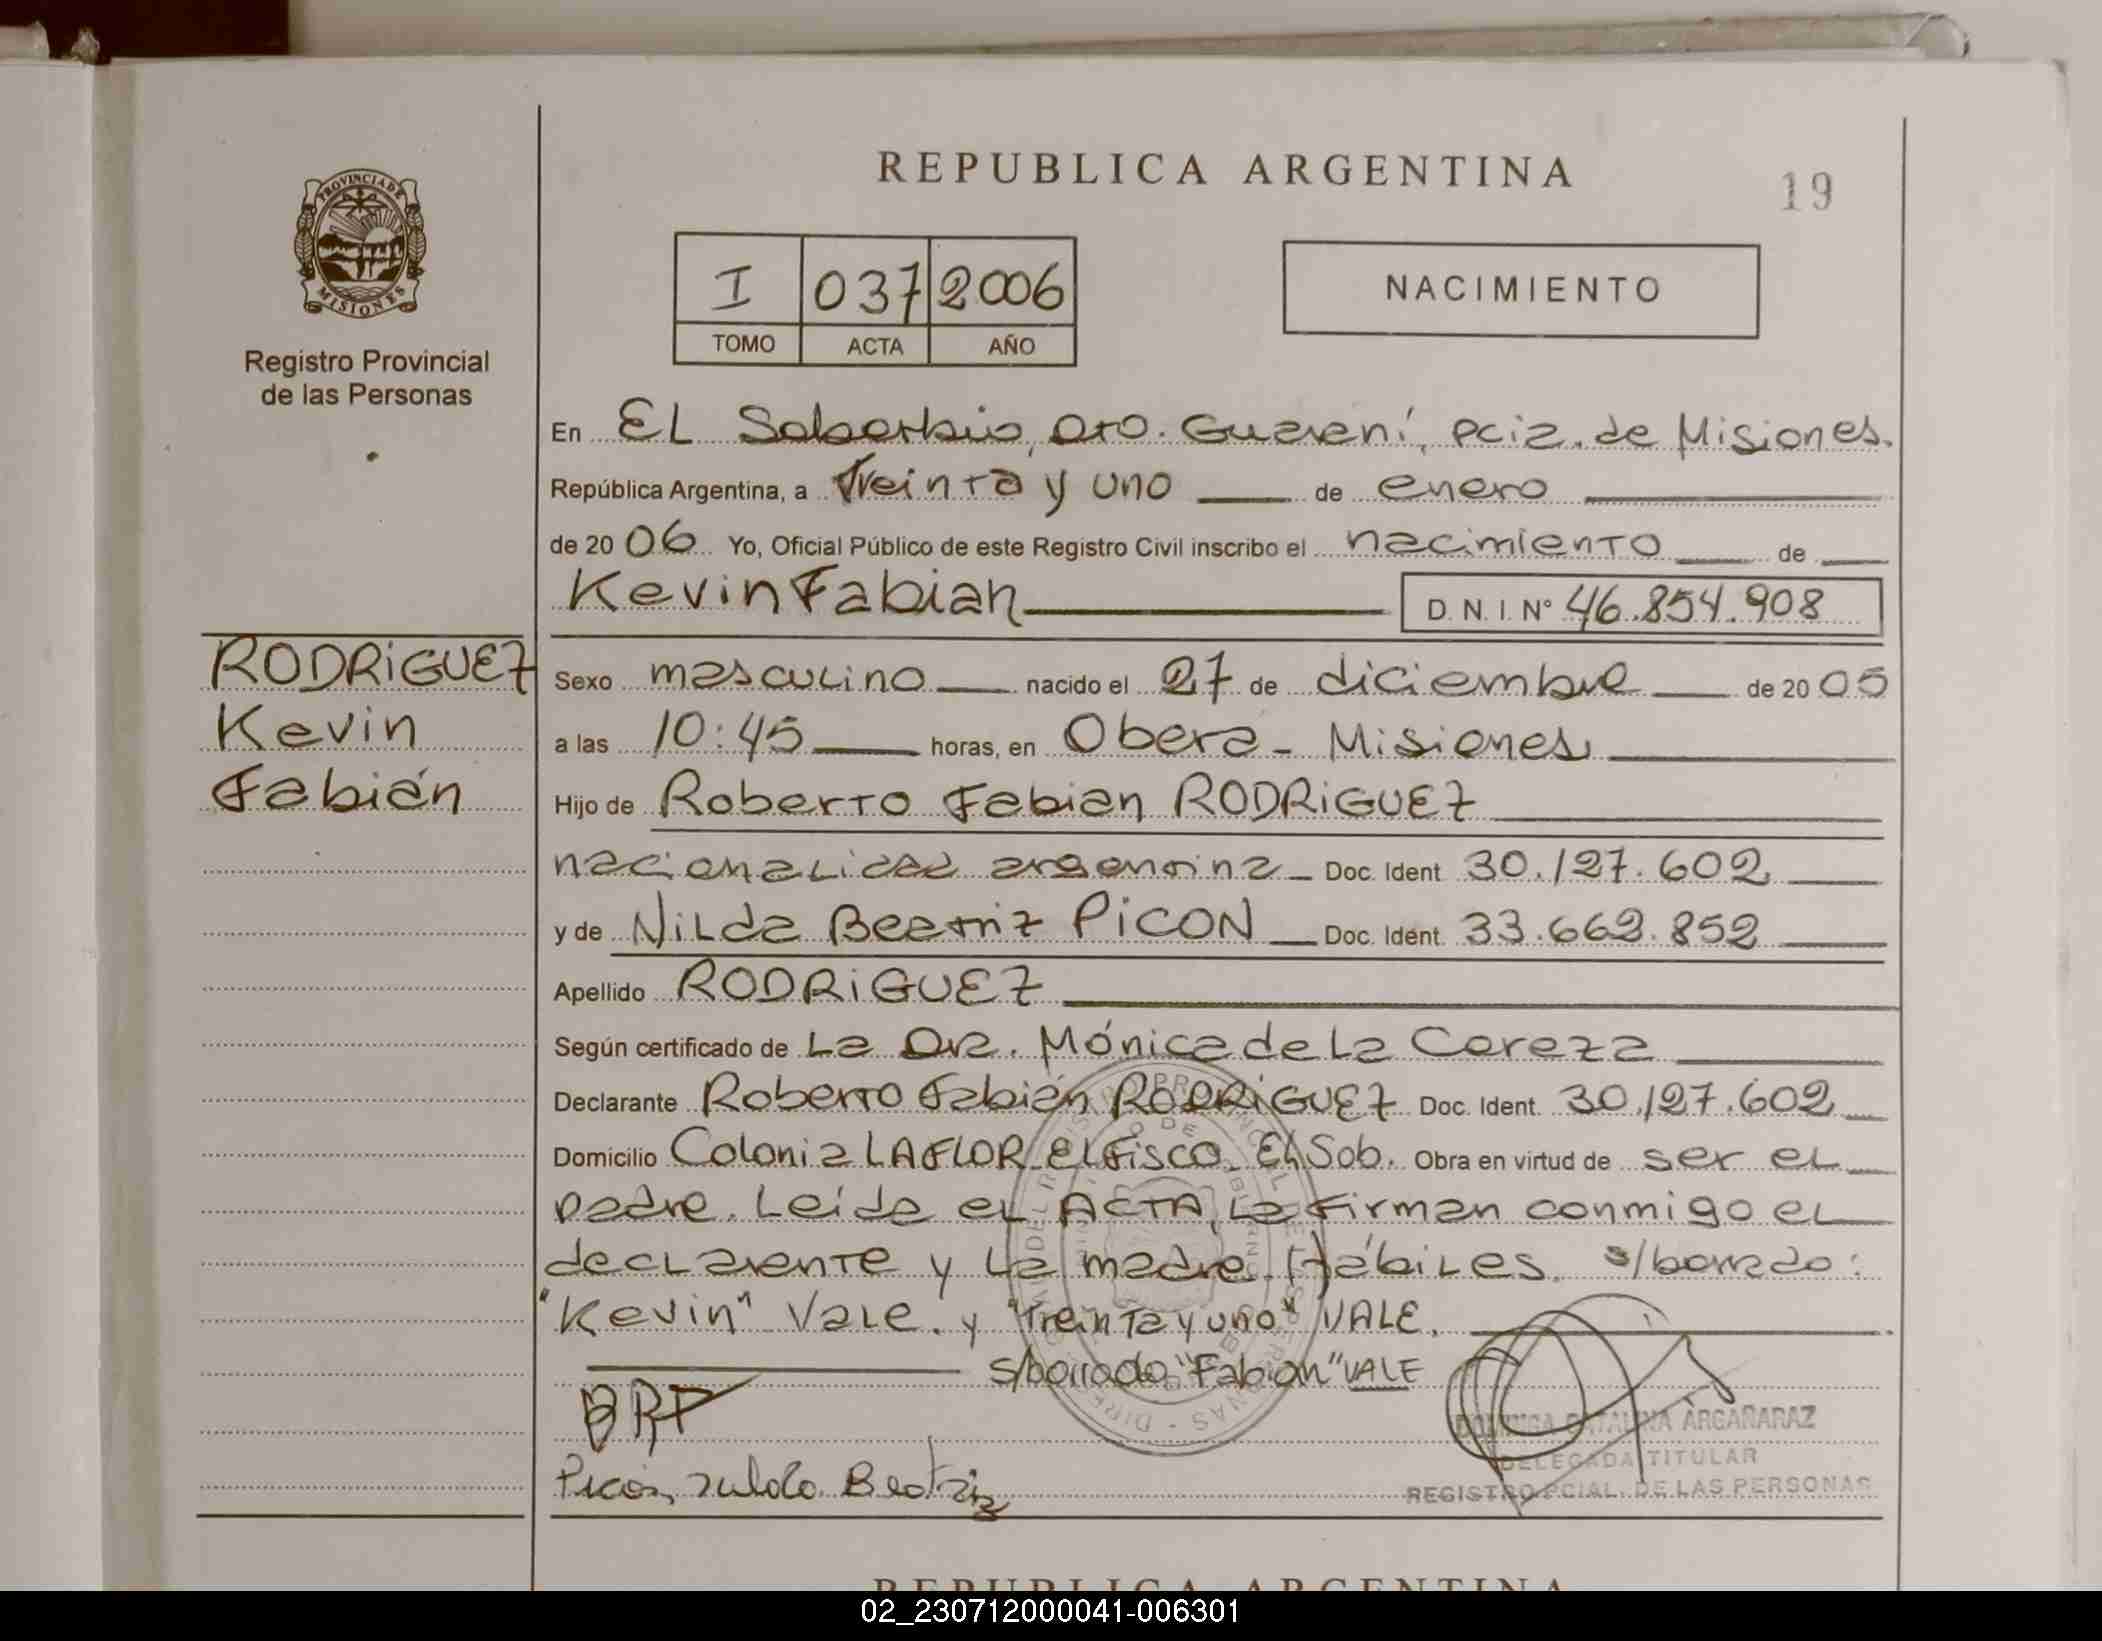 REPUBLICA ARGENTINA
19
PROVINCIA DE MISIONES
Registro Provincial
de las Personas
I 037 2006
TOMO ACTA AÑO
NACIMIENTO
En EL Soberbio, Dto. Guaraní, Pcia. de Misiones.
República Argentina, a Treinta y uno de enero
de 2006 Yo, Oficial Público de este Registro Civil inscribo el nacimiento de
Kevin Fabian D. N. I. Nº 46.854.908
RODRIGUEZ
Kevin
Fabián
Sexo masculino nacido el 27 de diciembre de 2005
a las 10:45 horas, en Obera - Misiones
Hijo de Roberto Fabian RODRIGUEZ
nacionalidad argentina Doc. Ident. 30.127.602
y de Nilda Beatriz PICON Doc. Ident. 33.662.852
Apellido RODRIGUEZ
Según certificado de La Dra. Mónica de La Coreza
Declarante Roberto Fabián RODRIGUEZ Doc. Ident. 30.127.602
Domicilio Colonia LA FLOR. EL FISCO. El Sob. Obra en virtud de ser el
padre. Leída el ACTA, La Firman conmigo el
declarante y La madre. Hábiles. s/borrado:
"Kevin" Vale. y "Treinta y uno" VALE.
s/borrado "Fabian" VALE
Picón, Nilda Beatriz
DOMINGA CATALINA ARGAÑARAZ
DELEGADA TITULAR
REGISTRO PCIAL. DE LAS PERSONAS
REPUBLICA ARGENTINA
02_230712000041-006301